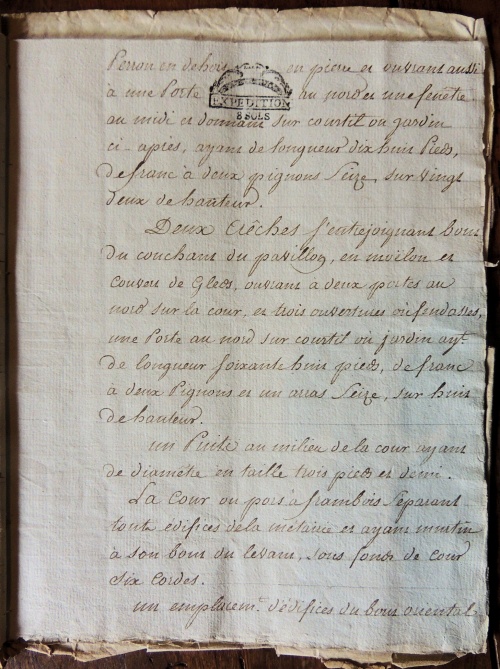 Perron en dehors en pierre et ouvrant aussi
à une Porte au nord et une fenêtre
EXPEDITION
8 SOLS
au midi et donnant sur courtil ou jardin
ci-après, ayant de longueur dix huit Pieds,
de franc à deux pignons Seize, sur vingt
deux de hauteur.
Deux Crêches s'entrejoignant bout
du couchant du pavillon, en moëlon et
couvert de Gleds, ouvrant à deux portes au
nord sur la cour, et trois ouvertures ou fendasses,
une Porte au nord sur courtil ou jardin ayt.
de longueur soixante huit pieds, de franc
à deux Pignons et un arras Seize, sur huit
de hauteur.
un Puits au milieu de la cour ayant
de diamètre en taille trois pieds et demi.
La Cour ou pors à frambois Séparant
touts édifices de la métairie et ayant
à son bout du levant, sous fonds de cour
Six Cordes.
un emplacemt. d'édifices du bout oriental